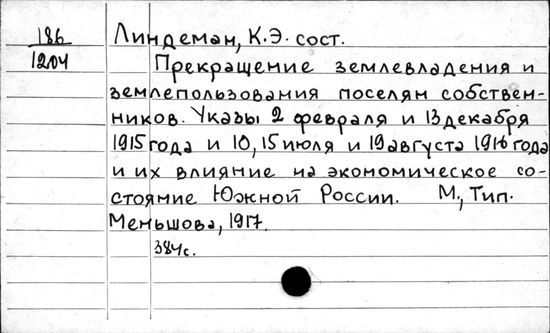 186
1204
Линдеман, К.Э. сост.
Прекращение землевладения и
землепользования поселян собствен-
ников. Указы 2 февраля и 13 декабря
1915 года и 10, 15 июля и 19 августа 1916 года
и их влияние на экономическое со-
стояние Южной России. М., Тип.
Меньшова, 1917.
384с.